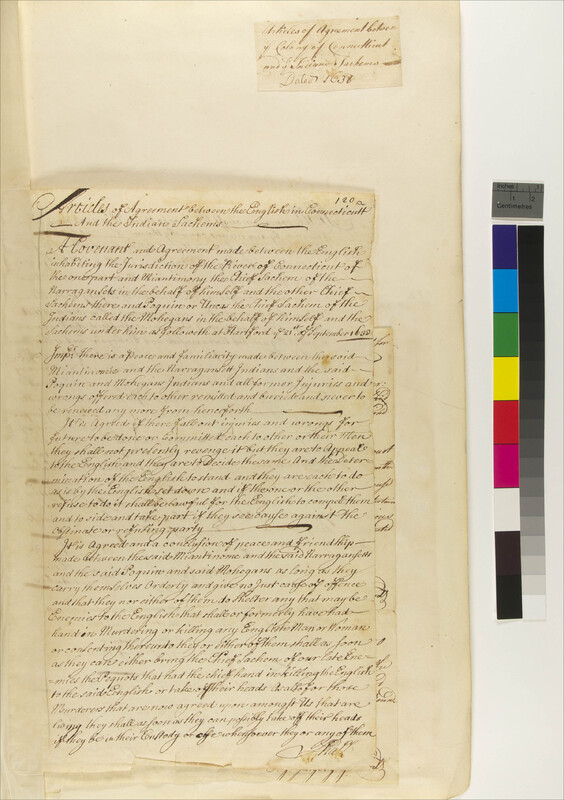 Articles of Agreement betwee
y Colony of Connecticut
and y Indians Sachems
Dated 1638
120
Articles of Agreement between the English in Connecticutt
And the Indian Sachems
A Covenant and Agreement made between the English
inhabiting the Jurisdiction of the River of Connecticut of
the one part and Miantinomy the Chief Sachem of the
Narragansetts in the behalf of himself and the other Chief
Sachems there and Poquin or Uncas the Chief Sachem of the
Indians called the Mohegans in the behalf of himself and the
Sachems under him as followeth at Hartford y 21st of September 1638
Impr there is a Peace and familiarity made between the said
Miantinomie and the Narragansett Indians and the said
Poquin and Mohegans Indians and all former Injuries and
wrongs offered each to other remitted and buried and never to
be renewed any more from henceforth
It is Agreed if there fall out injuries and wrongs for
future to be done or Committed each to other or their Men
they shall not presently revenge it but they are to Appeale
to the English and they are to Decide the same And the Deter
mination of the English to stand and they are each to do
as is by the English set down and if the one or the other
refuse to do it shall be lawfull for the English to compell them
and to side and take part if they see Cause against the
Obstinate or refusing party
It is Agreed and a conclusion of peace and friendship
made between the said Miantinome and the said Narragansetts
and the said Poquin and said Mohegans as long as they
carry themselves Orderly and give no Just cause of offence
and that they nor either of them do shelter any that may be
Enemies to the English that shall or formerly have had
hand in Murdering or killing any English Man or Woman
or consenting thereunto they or either of them shall as soon
as they can either bring the Chief Sachem of our late Ene
mies the Pequots that had the chief hand in killing the English
to the said English or take off their heads As also for those
Murderers that are now agreed upon amongst Us that are
living they shall as soon as they can possibly take off their heads
if they be in their Custody or else whensoever they or any of them
Shall
inches
1
2
Centimetres